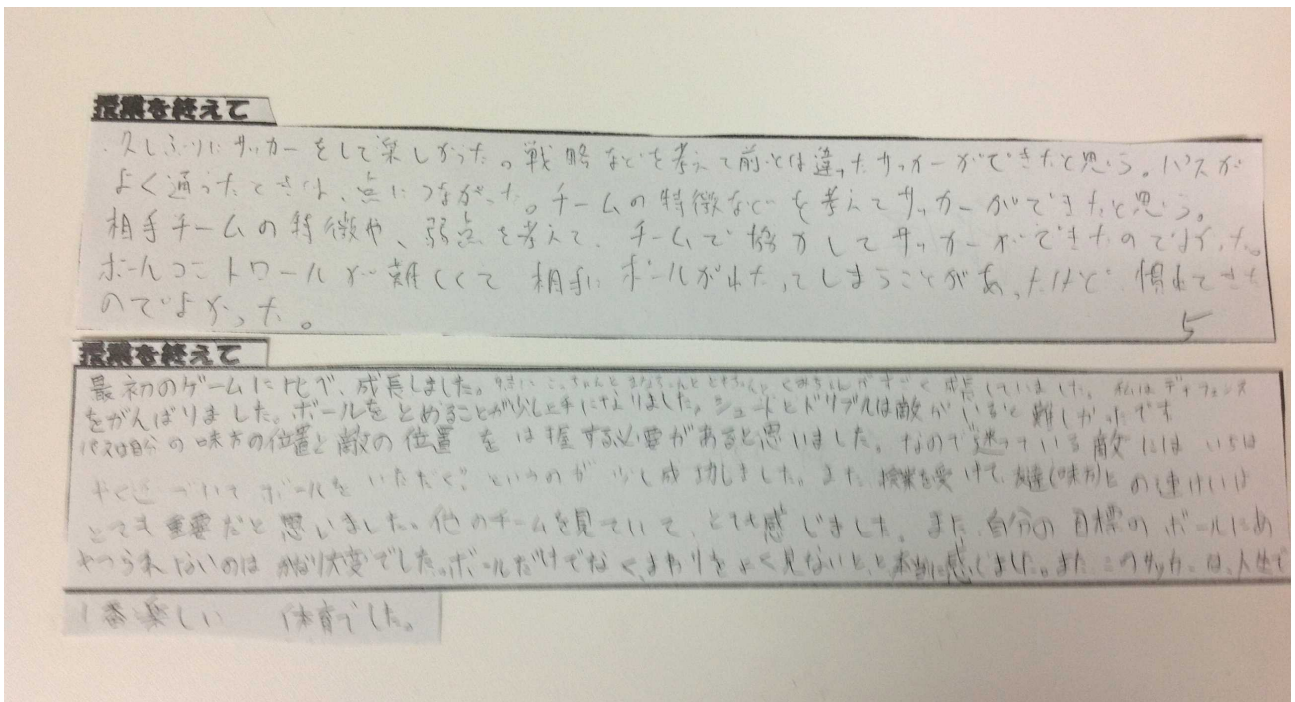 授業を終えて
久しぶりにサッカーをして楽しかった。戦略などを考えて前とは違ったサッカーができたと思う。パスが
よく通ったときは、点につながった。チームの特徴などを考えてサッカーができたと思う。
相手チームの特徴や、弱点を考えて、チームで協力してサッカーができたのでよかった。
ボールコントロールが難しくて相手にボールがわたってしまうことがあったけど、慣れてきた
のでよかった。
5
授業を終えて
最初のゲームに比べ、成長しました。特に がすごく成長していました。私はディフェンス
をがんばりました。ボールをとめることが少し上手になりました。シュートとドリブルは敵がいると難しかったです
パスは自分の味方の位置と敵の位置をは握する必要があると思いました。なので迷っている敵にはいちは
やく近づいてボールをいただく!というのが少し成功しました。また、授業を受けて、友達(味方)との連けいは
とても重要だと思いました。他のチームを見ていて、とても感じました。また、自分の目標のボールにあ
やつられないのはかなり大変でした。ボールだけでなく、まわりをよく見ないと、と本当に感じました。また、このサッカーは、人生で
1番楽しい 体育でした。